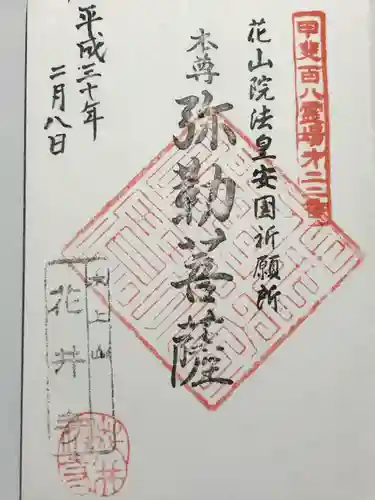 甲斐百八霊場第二二番
花山院法皇安国祈願所
本尊
弥勒菩薩
平成三十年
二月八日
上山
花井寺